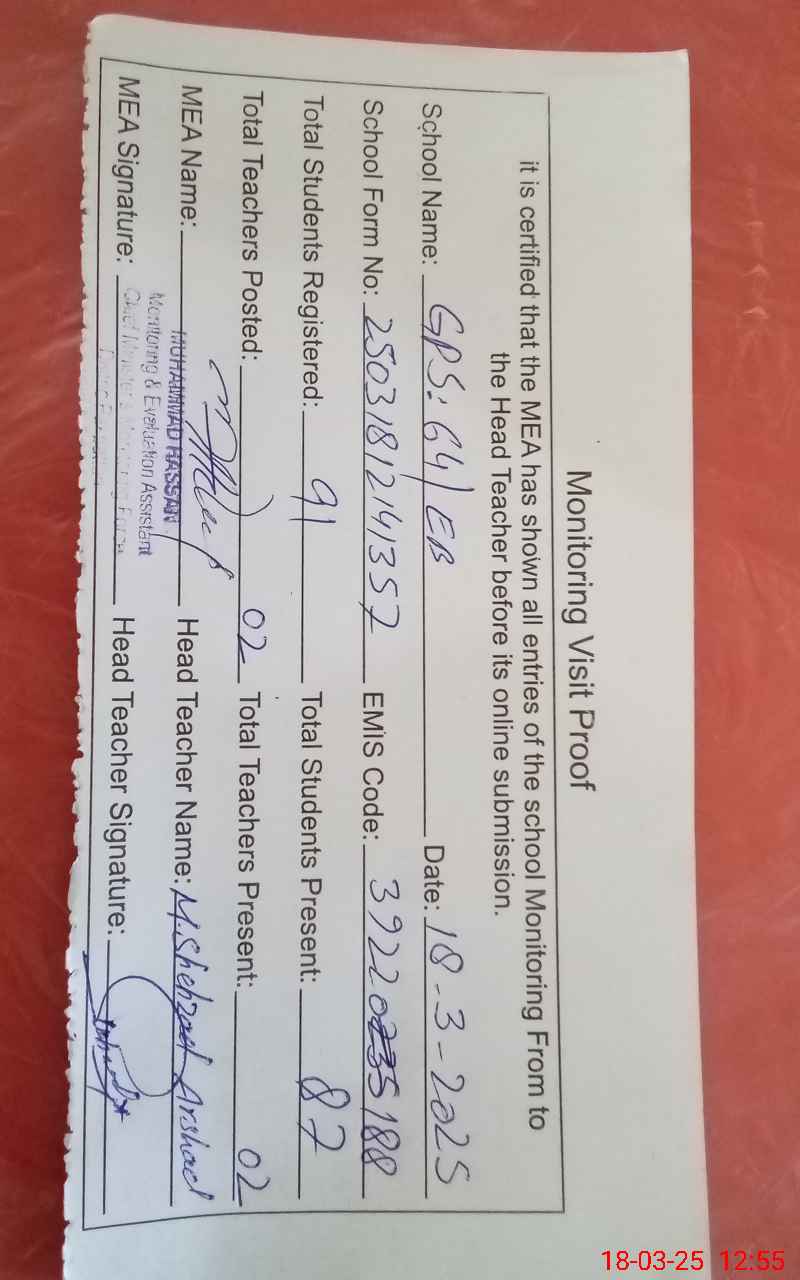 Monitoring Visit Proof
it is certified that the MEA has shown all entries of the school Monitoring From to
the Head Teacher before its online submission.
School Name: GPS: 64/EB Date: 18-3-2025
School Form No: 25031812141357 EMIS Code:
Total Students Registered: 91 Total Students Present: 87
Total Teachers Posted: 02 Total Teachers Present: 02
MEA Name: MUHAMMAD HASSAN Head Teacher Name: M. Shehzad Arshad
Monitoring & Evaluation Assistant
MEA Signature: Head Teacher Signature:
18-03-25 12:55